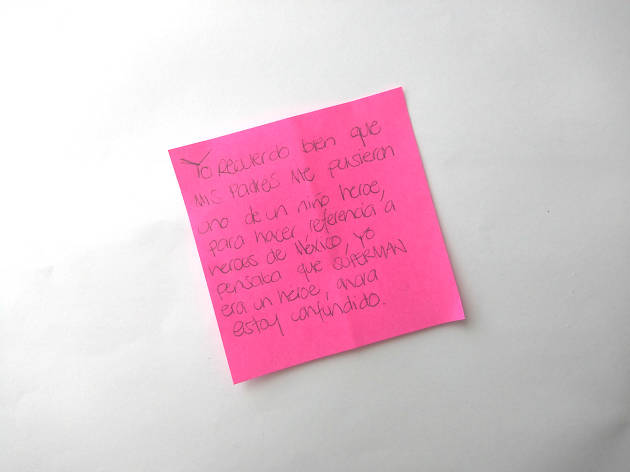 Yo Recuerdo bien que
Mis Padres Me pusieron
uno de un niño heroe,
para hacer referencia a
heroes de Mexico, yo
pensaba que SUPERMAN
era un heroe, ahora
estoy confundido.